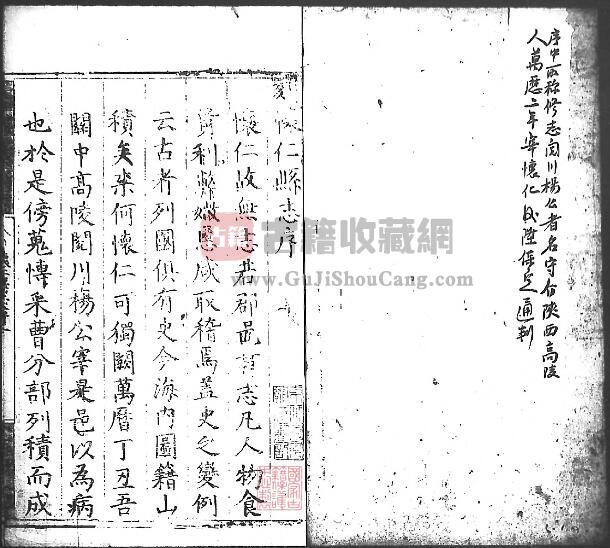 序中所称修志闵川楊公者名守介陝西高陵
人萬歷二年宰懷仁後陞保定通判
懷仁縣志序
懷仁故無志者郡邑有志凡人物食
貨利弊媺慝咸取稽焉盖史之變例
云古者列國俱有史今海内圖籍山
積矣柰何懷仁可獨闕萬曆丁丑吾
關中高陵閔川楊公宰是邑以為病
也於是傍蒐愽采曹分部列積而成
古籍
古籍收藏网
www.GuJiShouCang.com